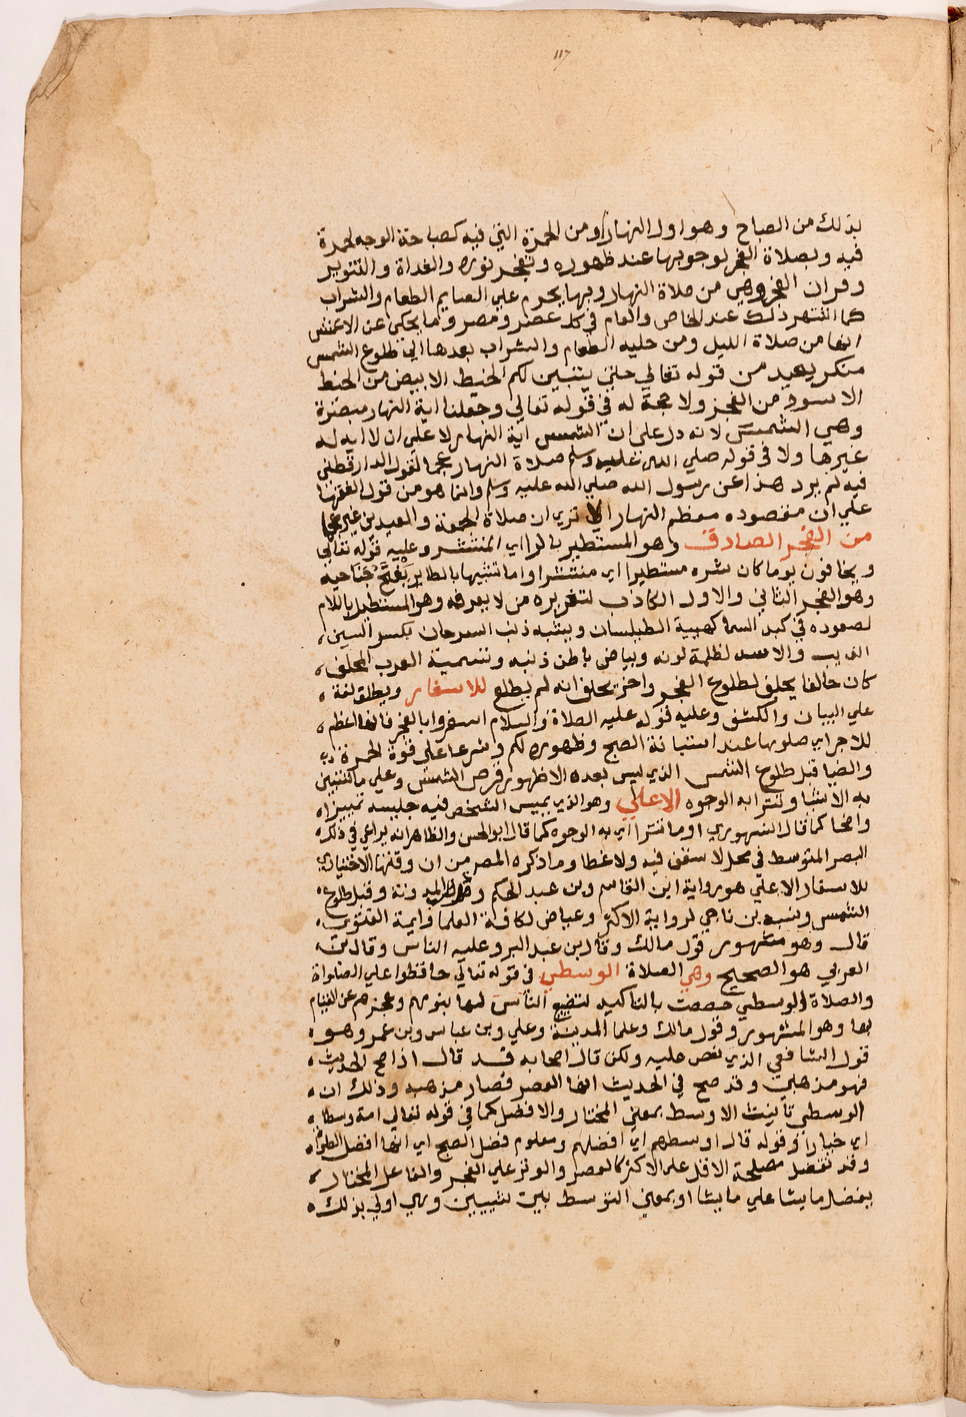 117
بذلك من الصباح وهو اول النهار او من الحمرة التي فيه كصباحة الوجه لحمرة
فيه وبصلاة الفجر لوجوبها عند ظهوره وتفجر نوره والغداة والتنوير
وقران الفجر وهي من صلاة النهار وبها يحرم علي الصايم الطعام والشراب
كما اشتهر ذلك عند الخاص والعام في كل عصر ومصر وما يحكي عن الاعمش
انها من صلاة الليل ومن حليه الطعام والشراب بعدها الي طلوع الشمس
منكر يعيد من قوله تعالي حتي يتبين لكم الخيط الابيض من الخيط
الاسود من الفجر ولا حجة له في قوله تعالي وجعلنا اية النهار مبصرة
وهي الشمس لانه دل علي ان الشمس اية النهار لا علي ان لا ايه له
غيرها ولا في قوله صلي الله عليه وسلم صلاة النهار عجما لقول الدارقطني
فيه لم يرد هذا عن رسول الله صلي الله عليه وسلم وانما هو من قول الفقها
علي ان مقصوده معظم النهار الا تري ان صلاة الجمعة والعيدين غير عجما
من الفجر الصادق وهو المستطير بالراي المنتشر وعليه قوله تعالي
ويخافون يوما كان شره مستطيرا اي منتشرا واما تشبيها بالطاير يفتح جناحيه
وهو الفجر الثاني والاول الكاذب لتغريره من لا يعرفه وهو المستطيل باللام
لصعوده في كبد السما كهيية الطيلسان ويشبه ذنب السرحان بكسر السين
الذيب والاسد لظلمة لونه وبياض باطن ذنبه وتسمية العرب المحلف
كان حالفا يحلف لطلوع الفجر واخر يحلف انه لم يطلع للاسفار ويطلق لغة
علي البيان والكشف وعليه قوله عليه الصلاة والسلام اسفروا بالفجر فانه اعظم
للاجر اي صلوها عند استبانة الصبح وظهوره لكم وشرعا علي قوة الحمرة
والضيا قبل طلوع الشمس الذي ليس بعده الا ظهور قرص الشمس وعلي ما تتبين
به الاشيا وتترا به الوجوه الاعلي وهو الذي يميس الشخص فيه جليسه تمييزا
واضحا كما قال السنهوري او ما تترا اي به الوجوه كما قال ابو الحسن والظاهر انه يراعي في ذلك
البصر المتوسط في محل لا سقف فيه ولا غطا وما ذكره المصر من ان وقتها الاختياري
للاسفار الاعلي هو رواية ابن القاسم وبن عبد الحكم المدونة وقيل طلوع
الشمس ونسبه بن ناجي لرواية الاكثر وعياض لكافة العلما وايمة الفتوي
قال وهو مشهور قول مالك وقال بن عبد البر وعليه الناس وقال بن
العربي هو الصحيح وهي الصلاة الوسطي في قوله تعالي حافظوا علي الصلواة
والصلاة الوسطي خصصت بالتاكيد لتضييع الناس لها بنومهم وعجزهم عن القيام
بها وهو المشهور وقول مالك وعلما المدينة وعلي وبن عباس وبن عمر وهو
قول الشافعي الذي نص عليه ولكن قال اصحابه قد قال اذا صح الحديث
فهو مذهبي وقد صح في الحديث انها العصر فصار مذهبه وذلك ان
الوسطي تانيث الاوسط بمعني المختار والافضل كما في قوله تعالي امة وسطا
اي خيارا وقوله قال اوسطهم اي افضلهم ومعلوم فضل الصبح اي انها افضل الصلواة
وقد تفضل مصلحة الاقل علي الاكثر كالعصر والوتر علي الفجر والفاعل المختار
يفضل ما يشا علي ما يشا او بمعني التوسط بين شييين وهي اولي بذلك